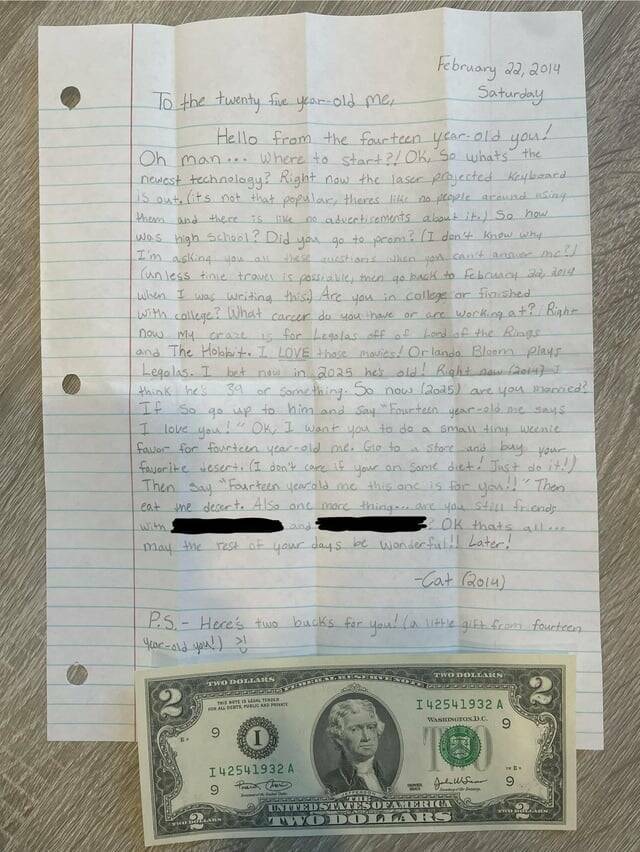 February 22, 2014
Saturday
To the twenty five year-old me,
Hello from the fourteen year-old you!
Oh man... Where to start?! OK, So whats the
newest technology? Right now the laser projected keyboard
is out, (its not that popular, theres like no people around using
them and there is like no advertisements about it.) So how
was high school? Did you go to prom? (I don't know why
I'm asking you all these questions when you can't answer me?!)
(unless time travel is possiable, then go back to February 22, 2014
when I was writing this.) Are you in college or finished
with college? What career do you have or are working at? Right
now my craze is for Legolas off of Lord of the Rings
and The Hobbit. I LOVE those movies! Orlando Bloom plays
Legolas. I bet now in 2025 he's old! Right now (2014) I
think he's 39 or something. So now (2025) are you married?
If so go up to him and say "Fourteen year-old me says
I love you!" OK, I want you to do a small tiny weenie
favor for fourteen year-old me. Go to a store and buy your
favorite desert. (I don't care if your on some diet! Just do it!)
Then say "Fourteen year old me this one is for you!!" Then
eat the desert. Also one more thing... are you still friends
with and ? OK thats all...
may the rest of your days be wonderful!! Later!
-Cat (2014)
P.S. - Here's two bucks for you! (a little gift from fourteen
year-old you!)
TWO DOLLARS FEDERAL RESERVE NOTE TWO DOLLARS
2 THIS NOTE IS LEGAL TENDER 2
FOR ALL DEBTS, PUBLIC AND PRIVATE
I 42541932 A
WASHINGTON, D.C.
9 I TWO 9
I 42541932 A
9 9
THE
UNITED STATES OF AMERICA
2 TWO DOLLARS 2